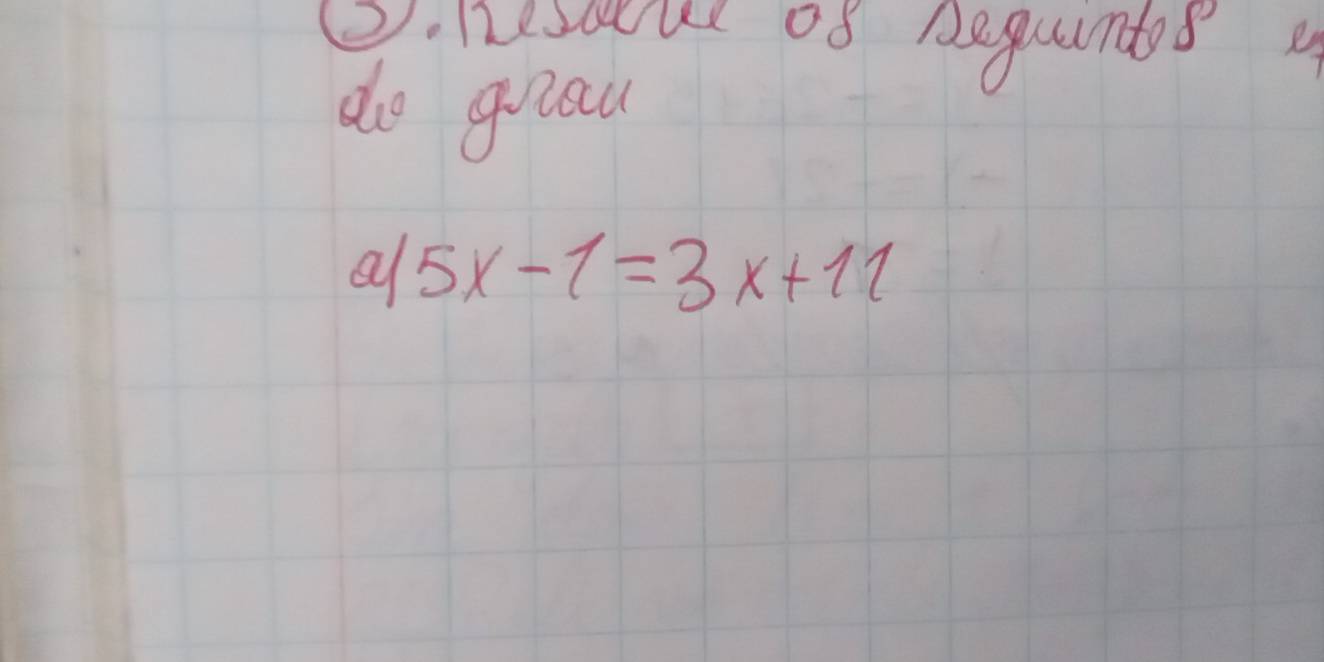 3). Resolve os seguintos
do grau
a) 5x-1=3x+11